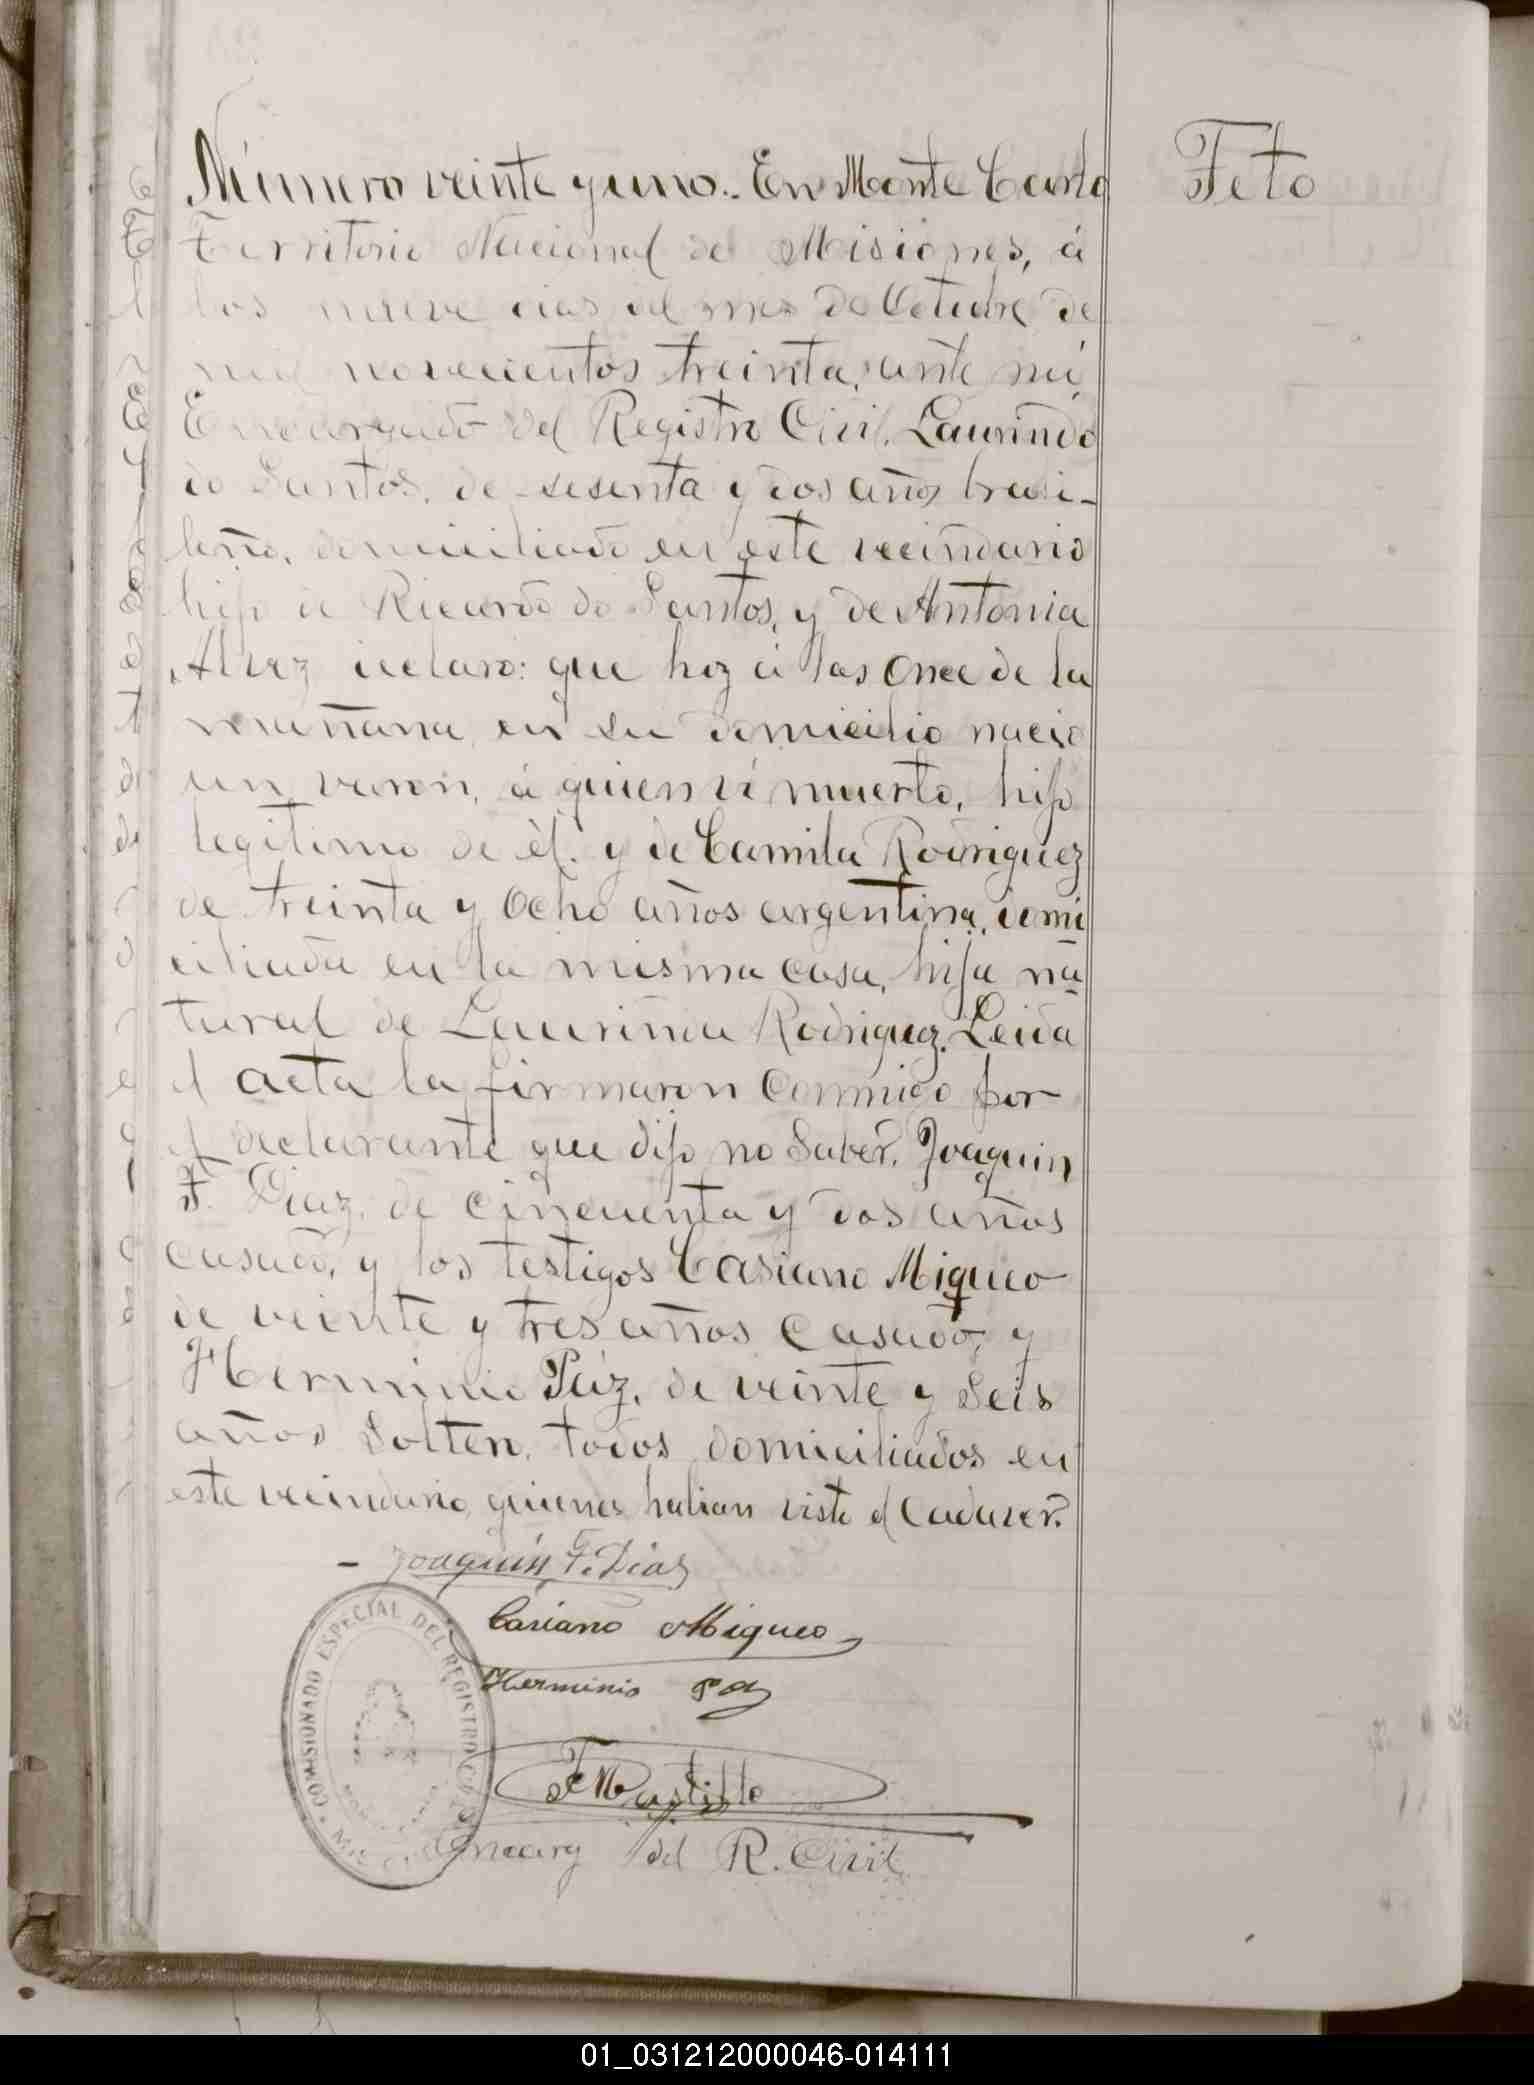 Número veinte y uno.. En Monte Carlo
Territorio Nacional de Misiones, á
los nueve dias del mes de Octubre de
mil novecientos treinta, ante mí
Encargado del Registro Civil, Laurindo
do Santos, de sesenta y dos años brasi-
leño, domiciliado en este vecindario
hijo de Ricardo do Santos, y de Antonia
Alvez declaro: que hoy á las once de la
mañana, en su domicilio nacio
un varon, á quien ví muerto, hijo
legitimo de él. y de Camila Rodriguez
de treinta y ocho años argentina, domi
ciliada en la misma casa, hija na
tural de Laurinda Rodriguez. Leida
el acta la firmaron conmigo por
el declarante que dijo no saber. Joaquin
F. Diaz, de cincuenta y dos años
casado, y los testigos Casiano Miqueo
de veinte y tres años casado, y
Herminio Paiz, de veinte y seis
años solten, todos domiciliados en
este vecindario, quienes habian visto el cadaver.
Feto
- Joaquín F. Dias
Casiano Miqueo
Herminio
COMISIONADO ESPECIAL DEL REGISTRO
Encarg del R. Civil
01_031212000046-014111